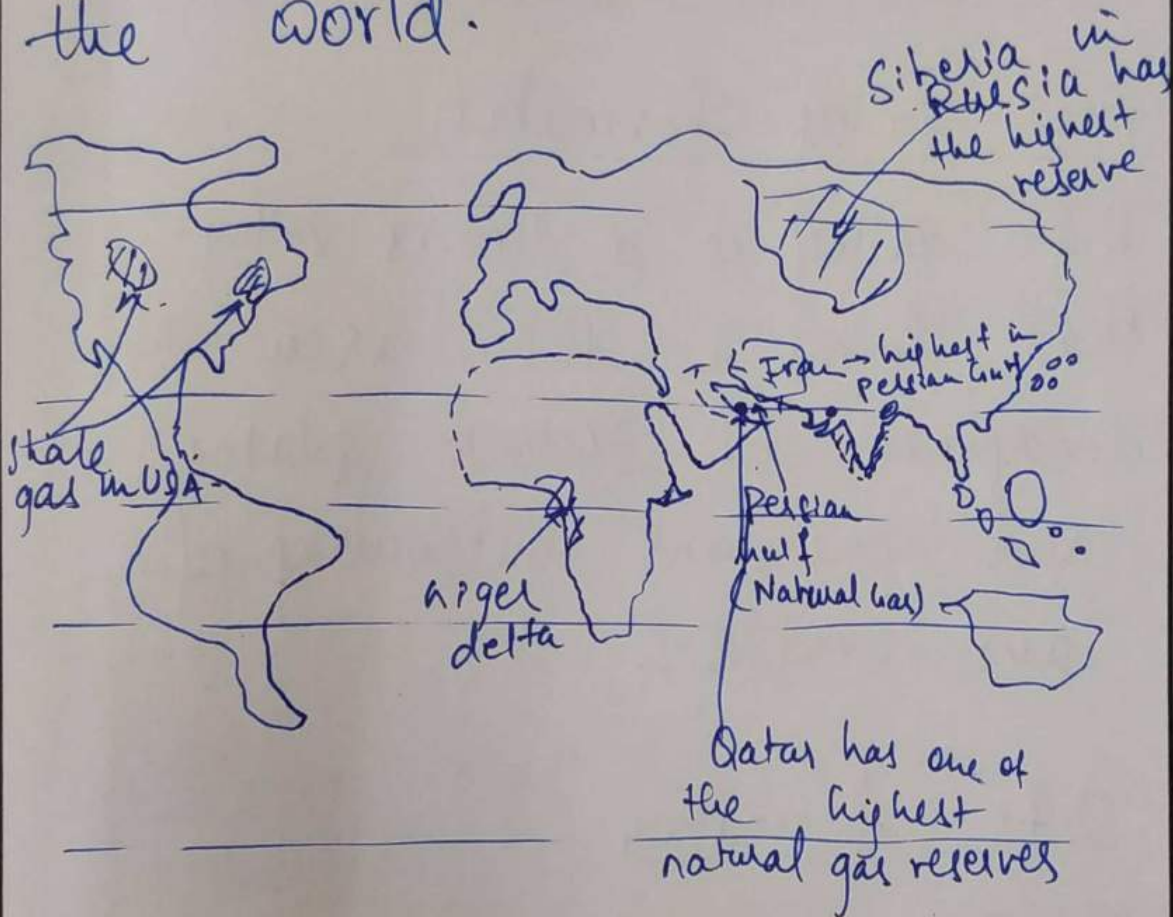 the world.
Siberia in
Russia has
the highest
reserve
Iran → highest in
persian Gulf
shale
gas in USA
Persian
Gulf
(Natural Gas)
niger
delta
Qatar has one of
the highest
natural gas reserves